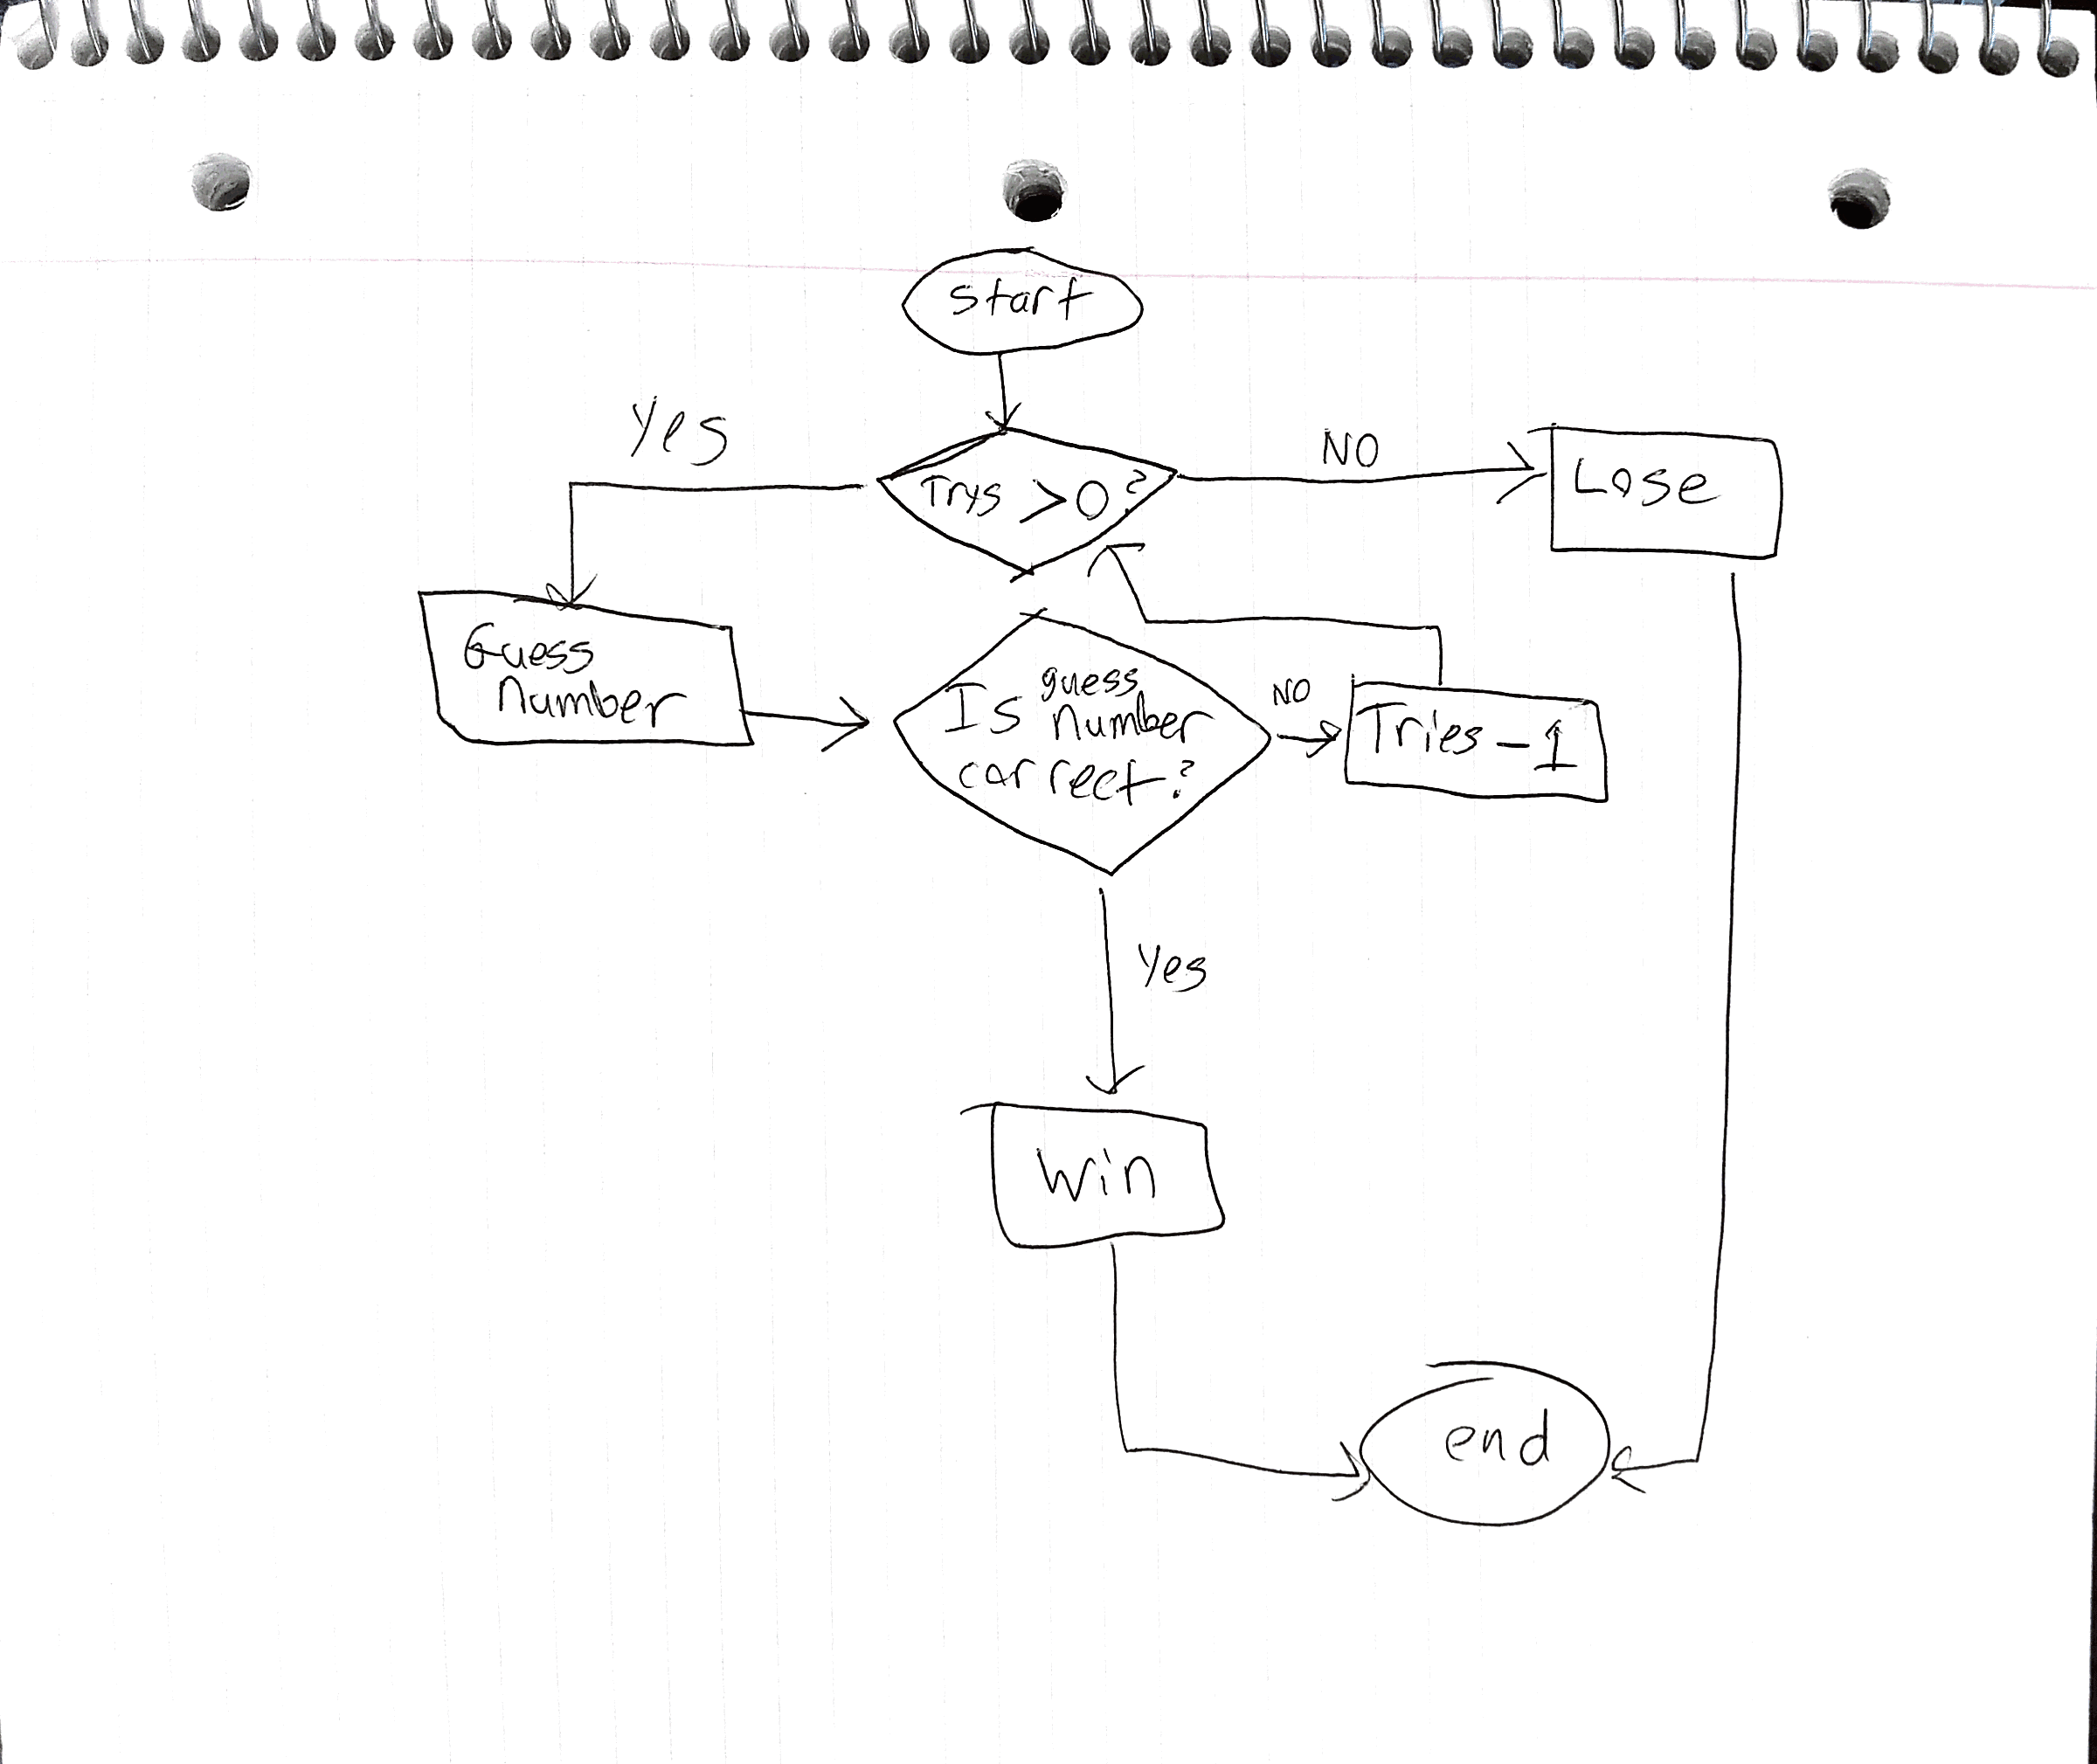 start
Yes
NO
Trys > 0?
Lose
Guess
number
Is guess
number
correct?
NO
Tries - 1
Yes
Win
end